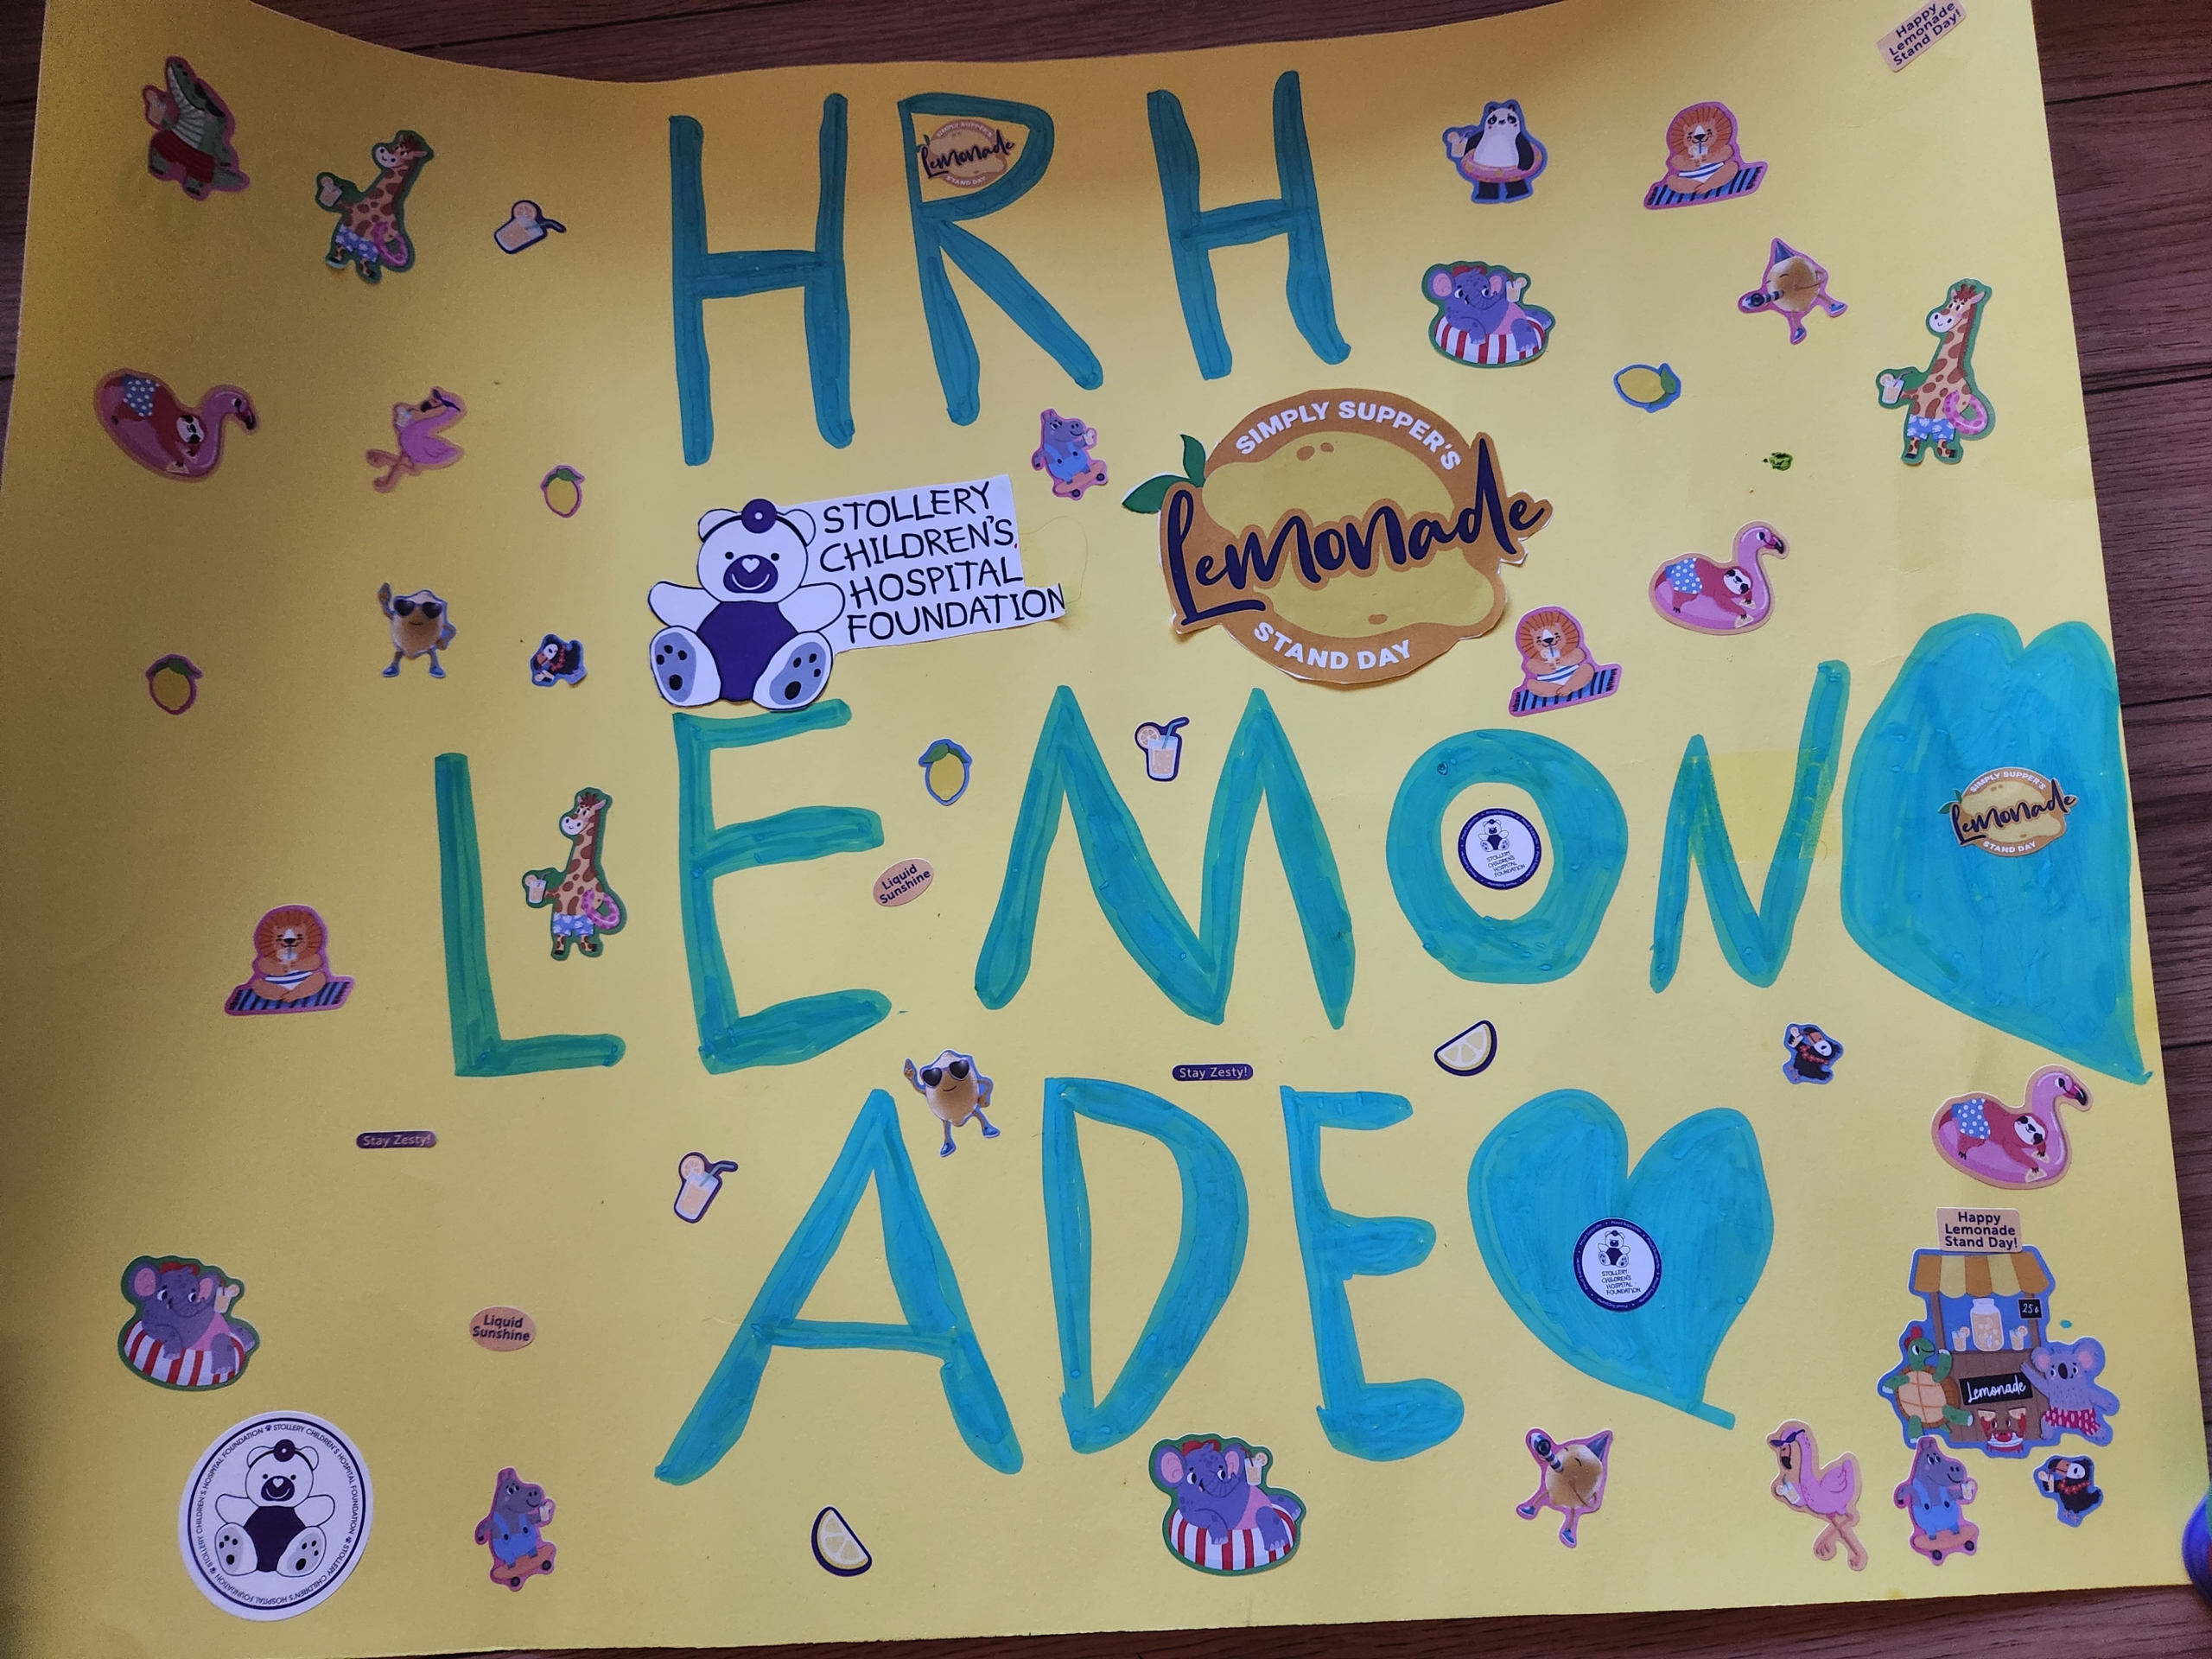 Happy
Lemonade
Stand Day!
HRH
SIMPLY SUPPER'S
Lemonade
STAND DAY
STOLLERY
CHILDREN'S
HOSPITAL
FOUNDATION
SIMPLY SUPPER'S
Lemonade
STAND DAY
LEMON
Liquid
Sunshine
STOLLERY
CHILDREN'S
HOSPITAL
FOUNDATION
SIMPLY SUPPER'S
Lemonade
STAND DAY
Stay Zesty!
Stay Zesty!
ADE
STOLLERY
CHILDREN'S
HOSPITAL
FOUNDATION
Happy
Lemonade
Stand Day!
25¢
Lemonade
Liquid
Sunshine
STOLLERY CHILDREN'S HOSPITAL FOUNDATION STOLLERY CHILDREN'S HOSPITAL FOUNDATION